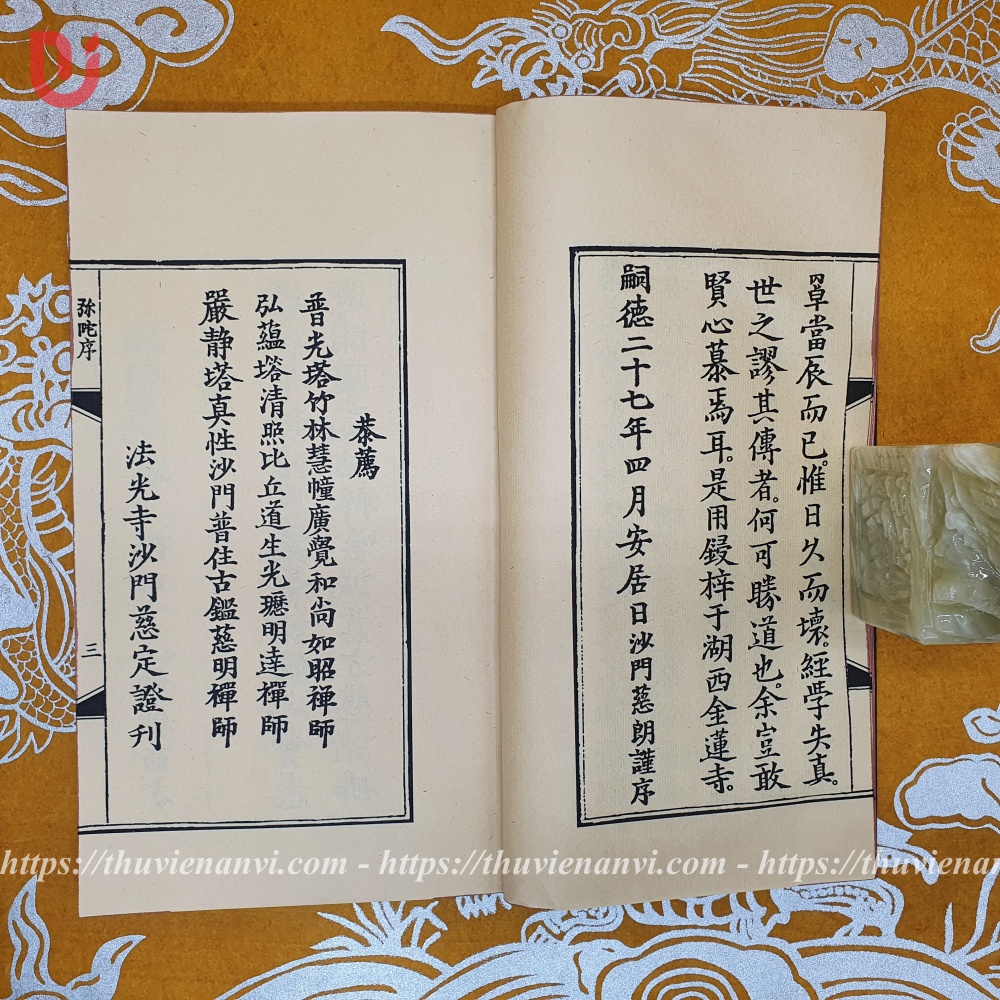 罩當辰而已。惟日久而壞。經學失真。
世之謬其傳者。何可勝道也。余豈敢
賢心慕焉耳。是用鋟梓于湖西金蓮寺。
嗣德二十七年四月安居日沙門慈朗謹序
恭薦
普光塔竹林慧幢廣覺和尚如昭禅師
弘蘊塔清照比丘道生光瓑明達禪師
嚴静塔真性沙門普住古鑑慈明禪師
法光寺沙門慈定證刊
弥陀序
三
https://thuvienanvi.com - https://thuvienanvi.com - https://thuviena